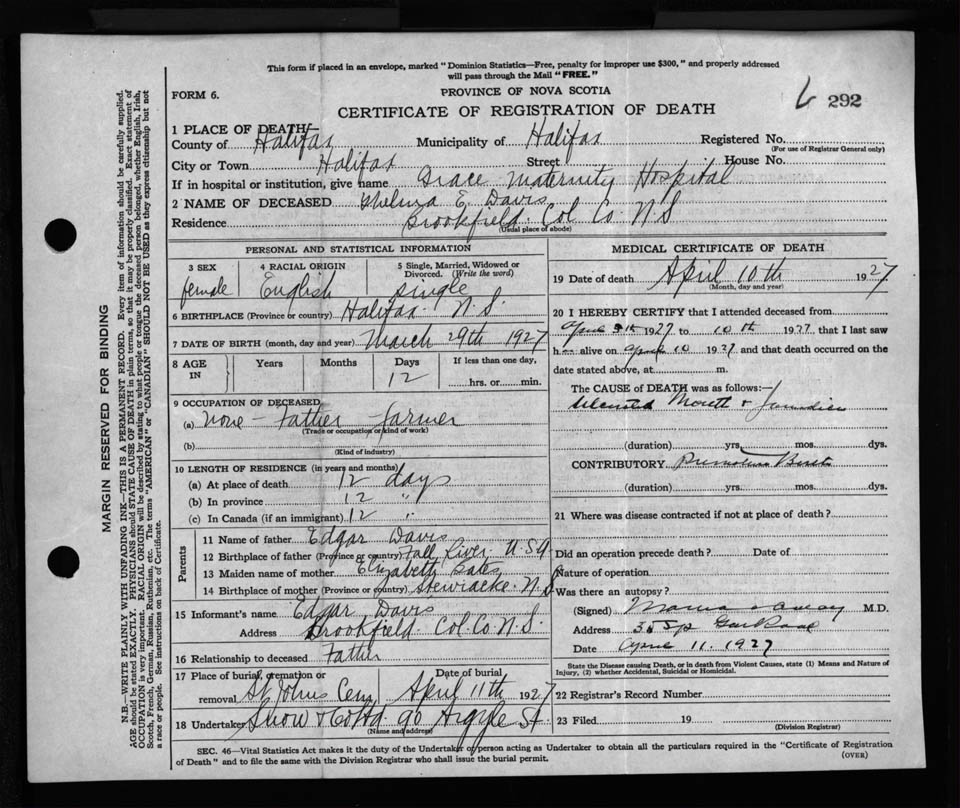 This form if placed in an envelope, marked "Dominion Statistics—Free, penalty for improper use $300," and properly addressed
will pass through the Mail "FREE."
FORM 6.
PROVINCE OF NOVA SCOTIA
CERTIFICATE OF REGISTRATION OF DEATH
292
1 PLACE OF DEATH
County of Halifax Municipality of Halifax Registered No.
(For use of Registrar General only)
City or Town Halifax Street House No.
If in hospital or institution, give name Grace Maternity Hospital
2 NAME OF DECEASED Thelma E. Davis
Residence Brookfield Col. Co. N.S
(Usual place of abode)
PERSONAL AND STATISTICAL INFORMATION
3 SEX female
4 RACIAL ORIGIN English
5 Single, Married, Widowed or
Divorced. (Write the word)
single
6 BIRTHPLACE (Province or country) Halifax N.S.
7 DATE OF BIRTH (month, day and year) March 29th 1927
8 AGE IN Years Months Days 12
If less than one day,
hrs. or min.
9 OCCUPATION OF DECEASED
(a) None - Father - farmer
(Trade or occupation or kind of work)
(b)
(Kind of industry)
10 LENGTH OF RESIDENCE (in years and months)
(a) At place of death 12 days
(b) In province 12 "
(c) In Canada (if an immigrant) 12 "
Parents
11 Name of father Edgar Davis
12 Birthplace of father (Province or country) Fall River U.S.A.
13 Maiden name of mother Elizabeth
14 Birthplace of mother (Province or country) Stewiacke N.S
15 Informant's name Edgar Davis
Address Brookfield Col. Co N.S.
16 Relationship to deceased Father
17 Place of burial, cremation or removal St Johns Cem
Date of burial April 11th 1927
18 Undertaker Snow & Co Ltd 90 Argyle St.
(Name and address)
MEDICAL CERTIFICATE OF DEATH
19 Date of death April 10th 1927
(Month, day and year)
20 I HEREBY CERTIFY that I attended deceased from
1927 to 10th 1927 that I last saw
h alive on April 10 1927 and that death occurred on the
date stated above, at m.
The CAUSE of DEATH was as follows:
Mouth & Jaundice
(duration) yrs. mos. dys.
CONTRIBUTORY Premature Birth
(duration) yrs. mos. dys.
21 Where was disease contracted if not at place of death?
Did an operation precede death? Date of
Nature of operation
Was there an autopsy?
(Signed) M.D.
Address
Date April 11. 1927
State the Disease causing Death, or in death from Violent Causes, state (1) Means and Nature of
Injury, (2) whether Accidental, Suicidal or Homicidal.
22 Registrar's Record Number
23 Filed 19
(Division Registrar)
SEC. 46—Vital Statistics Act makes it the duty of the Undertaker or person acting as Undertaker to obtain all the particulars required in the "Certificate of Registration
of Death" and to file the same with the Division Registrar who shall issue the burial permit.
(OVER)
MARGIN RESERVED FOR BINDING
N.B.—WRITE PLAINLY WITH UNFADING INK—THIS IS A PERMANENT RECORD. Every item of information should be carefully supplied.
AGE should be stated EXACTLY. PHYSICIANS should STATE CAUSE OF DEATH in plain terms, so that it may be properly classified. Exact statement of
OCCUPATION is very important. RACIAL ORIGIN will be described by stating to what people or tongue the deceased person belonged, whether English, Irish,
Scotch, French, German, Russian, Ruthenian, etc. The terms "AMERICAN" or "CANADIAN" SHOULD NOT BE USED as they express citizenship but not
a race or people. See instructions on back of Certificate.